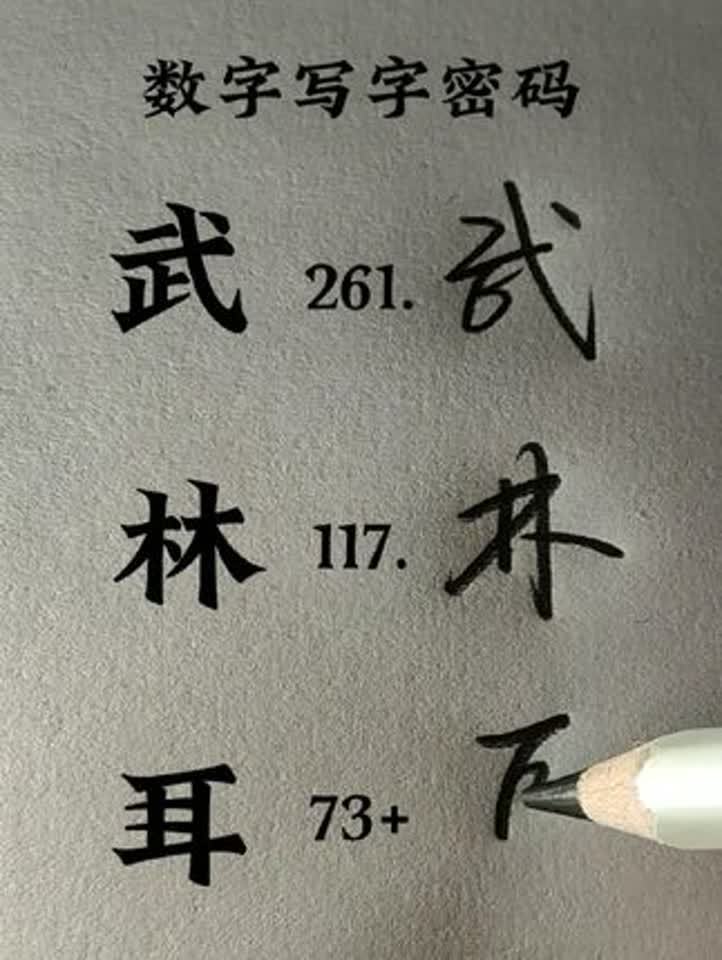 数字写字密码
武 261. 武
林 117. 林
耳 73+